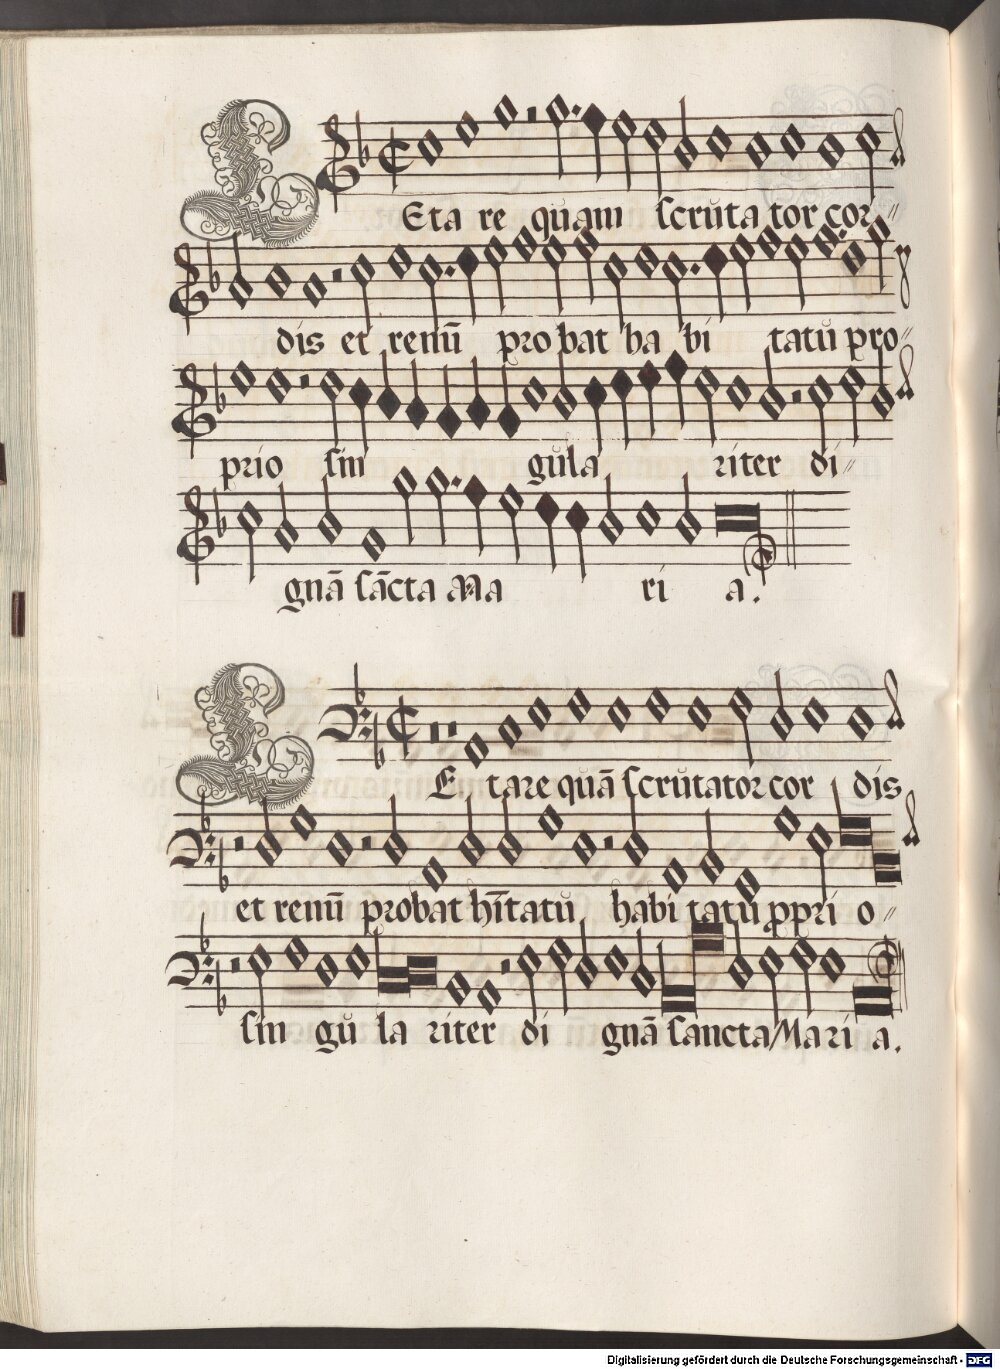 LEta re quam scrūta tor cor〃
dis et renū pro bat ha bi tatū pro〃
prio sin gula riter di〃
gnā sācta Ma ri a.
LEtare quā scrūtator cor dis
et renū probat hītatū, habi tatū ppri o〃
sin gū la riter di gnā sancta Mari a.
Digitalisierung gefördert durch die Deutsche Forschungsgemeinschaft - DFG